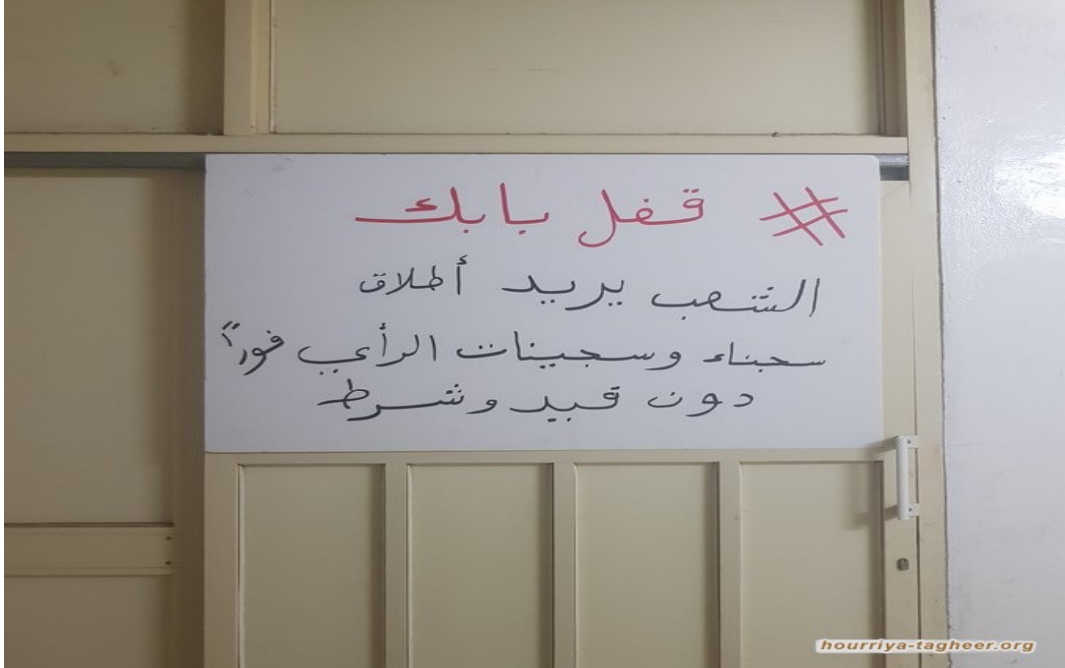 # قفل بابك
الشعب يريد أطلاق
سجناء وسجينات الرأي فوراً
دون قيد وشرط
hourriya-tagheer.org